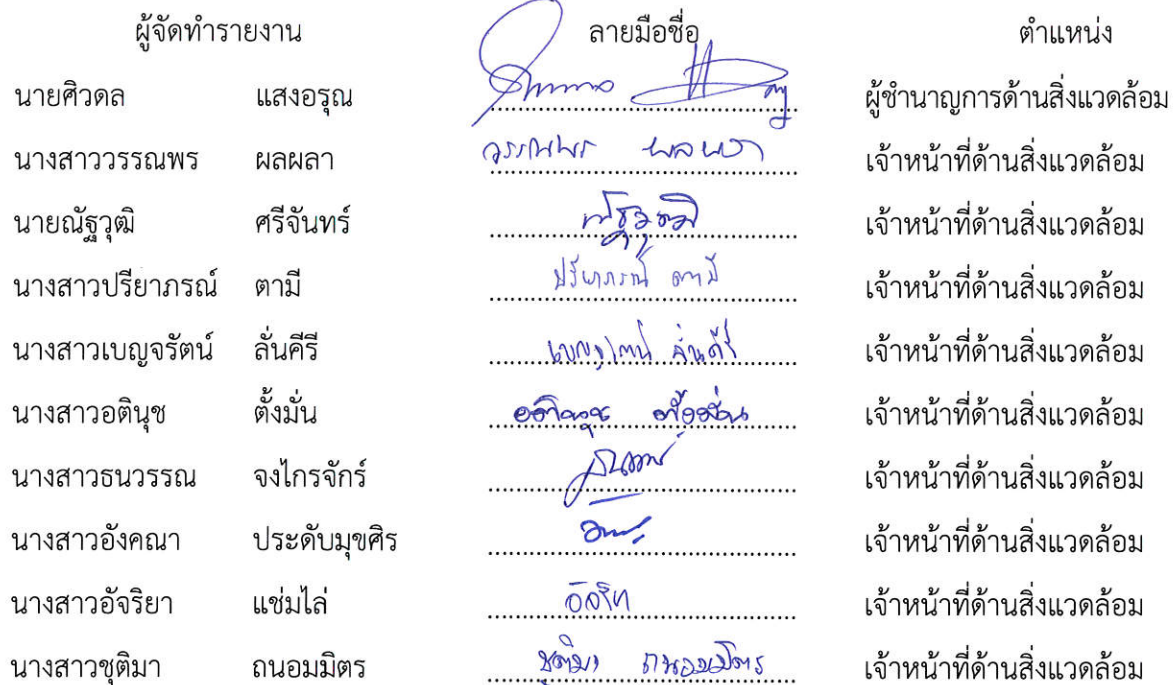 ผู้จัดทำรายงาน ลายมือชื่อ ตำแหน่ง
นายศิวดล แสงอรุณ ผู้ชำนาญการด้านสิ่งแวดล้อม
นางสาววรรณพร ผลผลา วรรณพร ผลผลา เจ้าหน้าที่ด้านสิ่งแวดล้อม
นายณัฐวุฒิ ศรีจันทร์ ณัฐวุฒิ เจ้าหน้าที่ด้านสิ่งแวดล้อม
นางสาวปรียาภรณ์ ตามี ปรียาภรณ์ ตามี เจ้าหน้าที่ด้านสิ่งแวดล้อม
นางสาวเบญจรัตน์ ลั่นคีรี เบญจรัตน์ ลั่นคีรี เจ้าหน้าที่ด้านสิ่งแวดล้อม
นางสาวอตินุช ตั้งมั่น อตินุช ตั้งมั่น เจ้าหน้าที่ด้านสิ่งแวดล้อม
นางสาวธนวรรณ จงไกรจักร์ ธนวรรณ เจ้าหน้าที่ด้านสิ่งแวดล้อม
นางสาวอังคณา ประดับมุขศิร เจ้าหน้าที่ด้านสิ่งแวดล้อม
นางสาวอัจริยา แช่มไล่ เจ้าหน้าที่ด้านสิ่งแวดล้อม
นางสาวชุติมา ถนอมมิตร ชุติมา ถนอมมิตร เจ้าหน้าที่ด้านสิ่งแวดล้อม